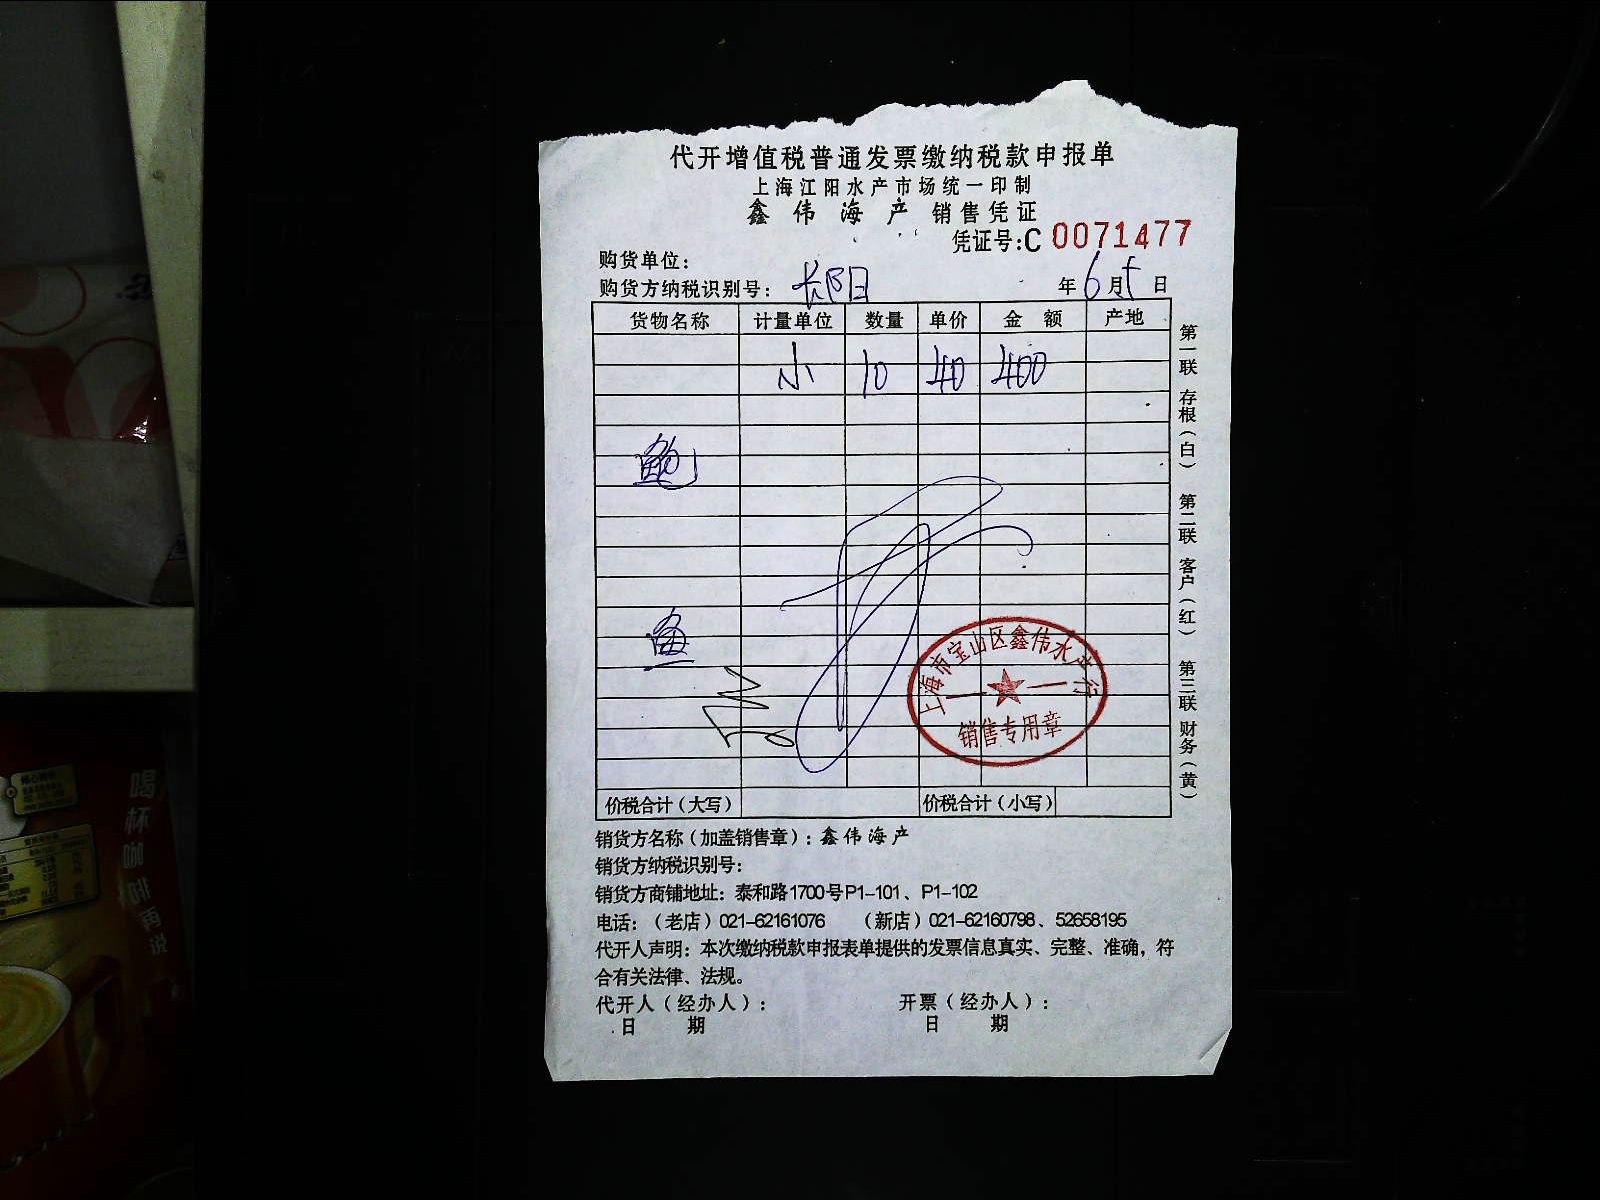 代开增值税普通发票缴纳税款申报单
上海江阳水产市场统一印制
鑫伟海产 销售凭证
凭证号:C 0071477
购货单位:
购货方纳税识别号: 长阳
年6月 日
货物名称 计量单位 数量 单价 金额 产地
小 10 40 400
鲍
鱼
上海市宝山区鑫伟水产行
销售专用章
价税合计(大写) 价税合计(小写)
第一联 存根(白) 第二联 客户(红) 第三联 财务(黄)
销货方名称(加盖销售章):鑫伟海产
销货方纳税识别号:
销货方商铺地址:泰和路1700号P1-101、P1-102
电话:(老店)021-62161076 (新店)021-62160798、52658195
代开人声明:本次缴纳税款申报表单提供的发票信息真实、完整、准确,符
合有关法律、法规。
代开人(经办人): 开票(经办人):
日 期 日 期
喝杯咖
再说